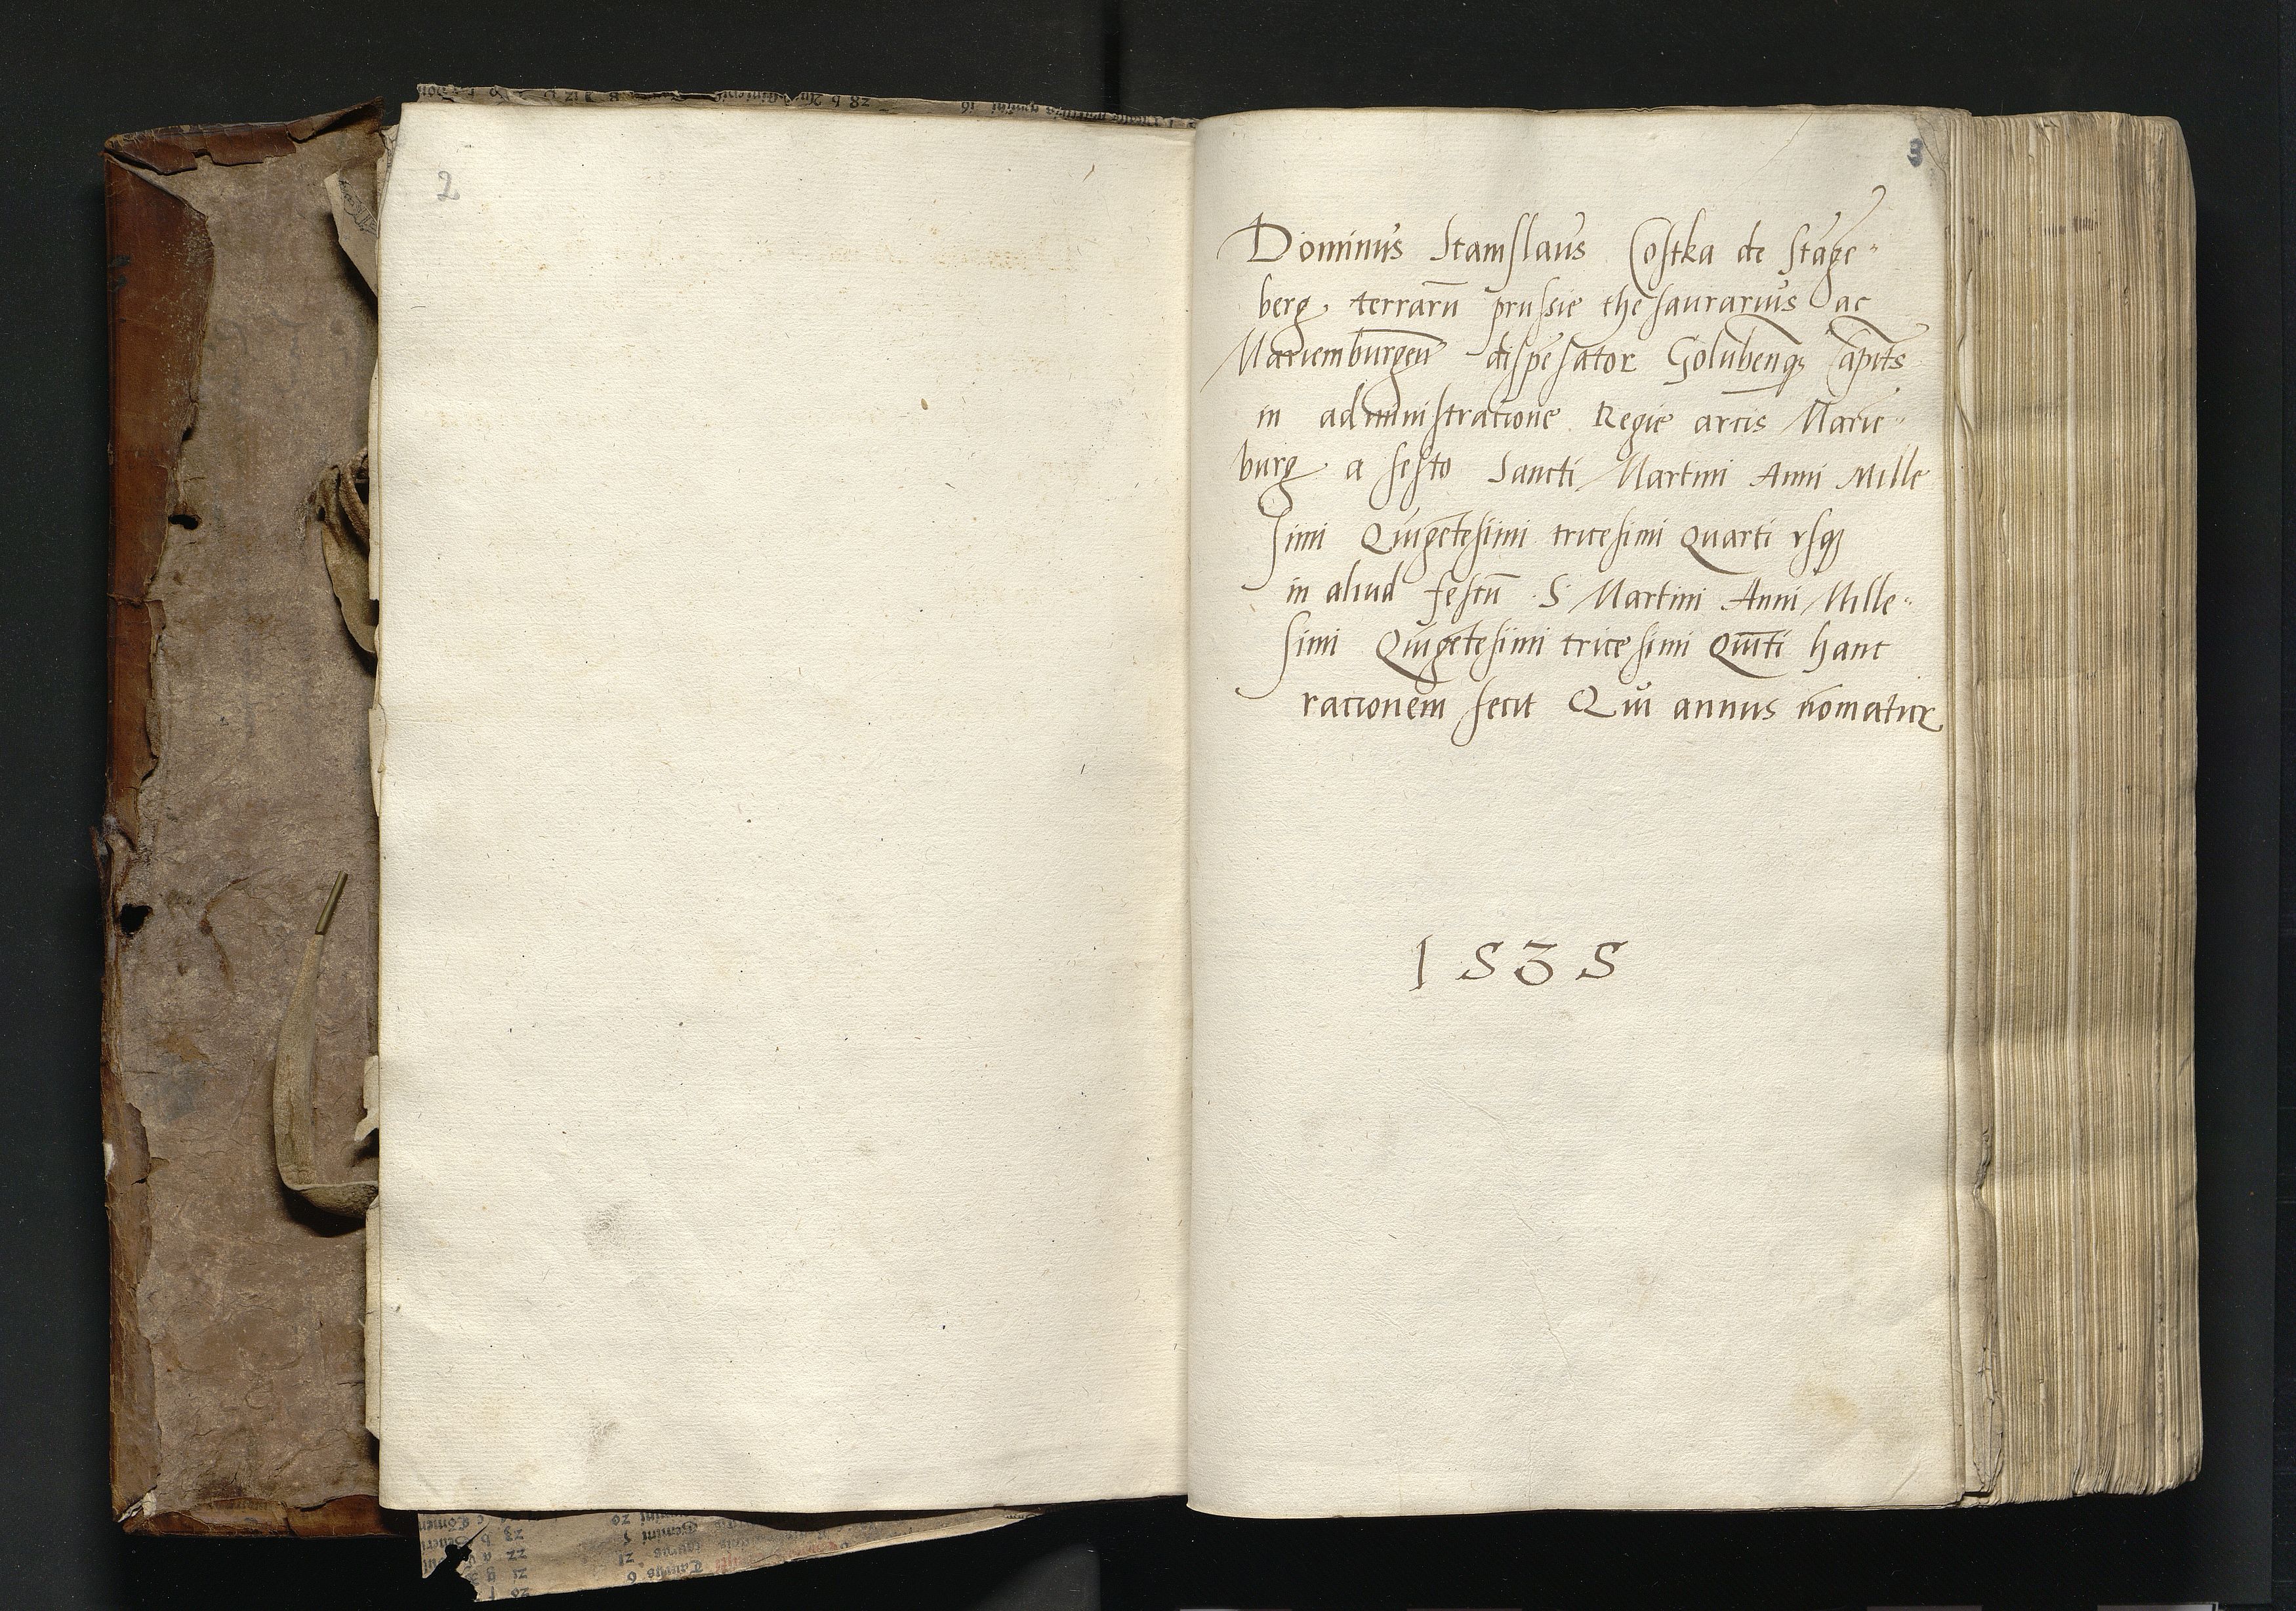 2
3
Dominus Stanislaus Costka de Stăge-
berg terrarū prussie thesaurarius ac
Mariemburgeñ dispēsator Golubenq; Capits
in administracione Regie arcis Marie-
burg a festo Sancti Martini Anni Mille
simi Quīgētesimi tricesimi Quarti vsq;
in aliud festū S Martini Anni Mille-
simi Quīgētesimi tricesimi Quīti hanc
racionem fecit Qui annus nōmatur
1535